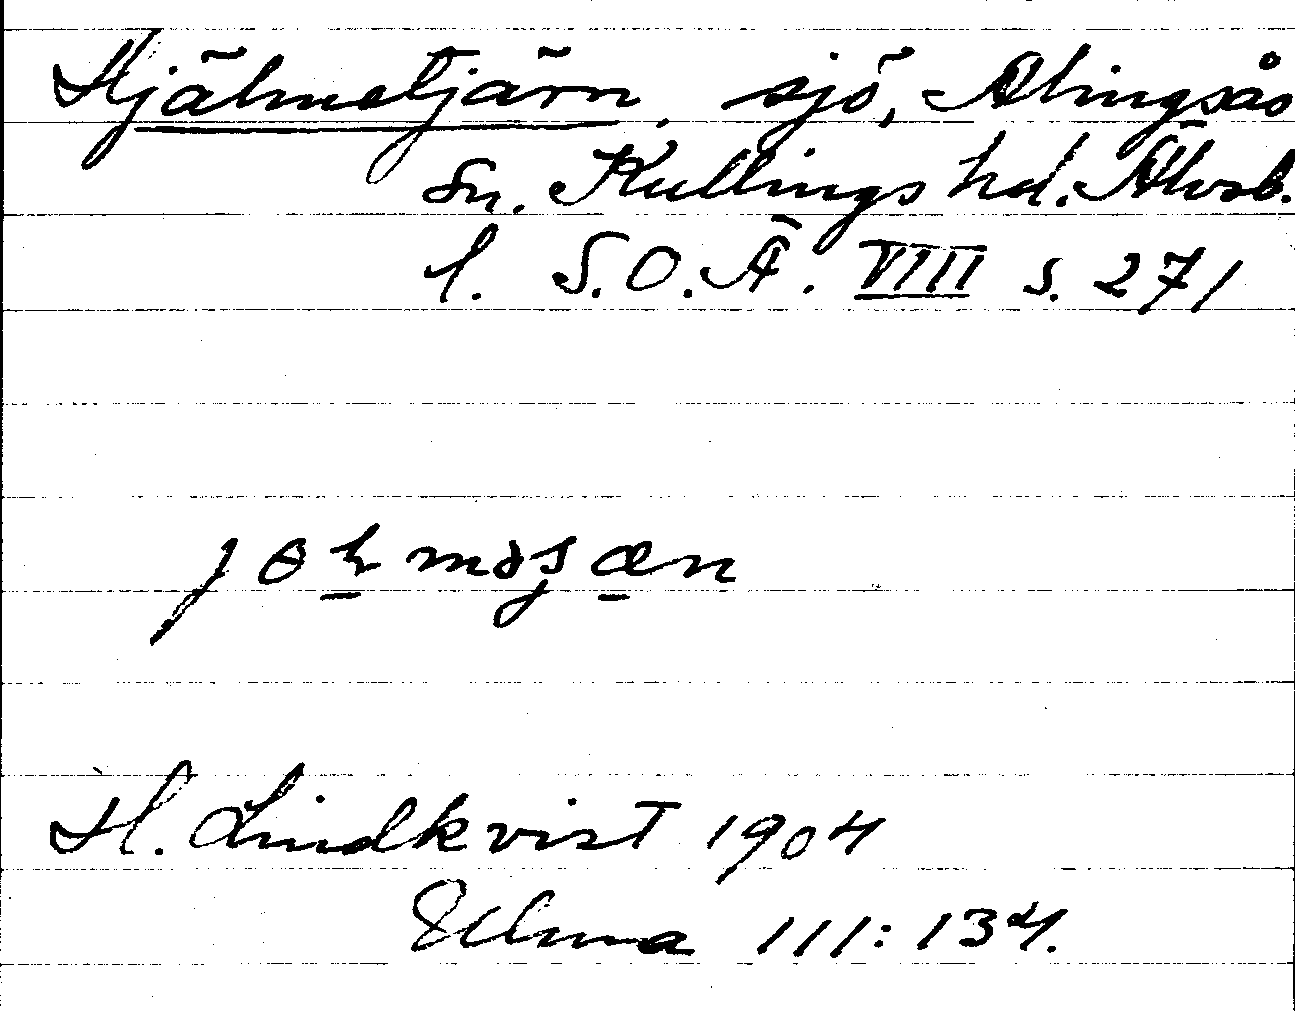 Hjälmetjärn, sjö, Alingsås
sn. Kullings hd. Älvsb.
l. S.O.Ä. VIII s. 271
H. Lindkvist 1904
Ulma 111:134.